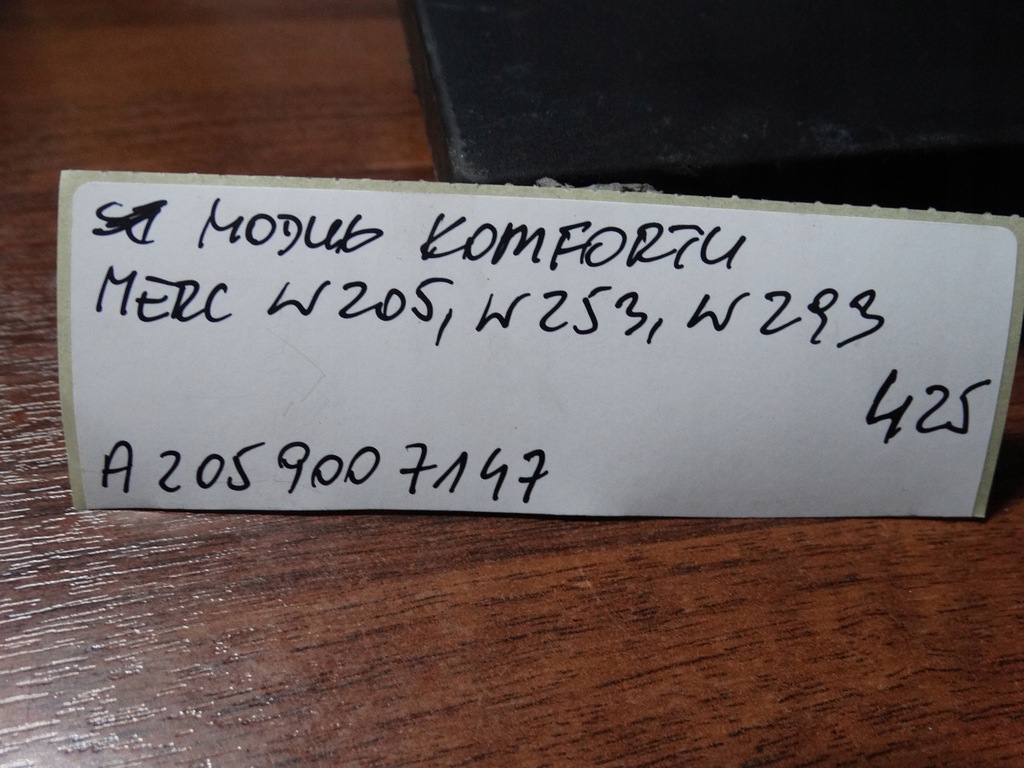 MODUŁ KOMFORTU
MERC W205, W253, W293
425
A 205 900 7147